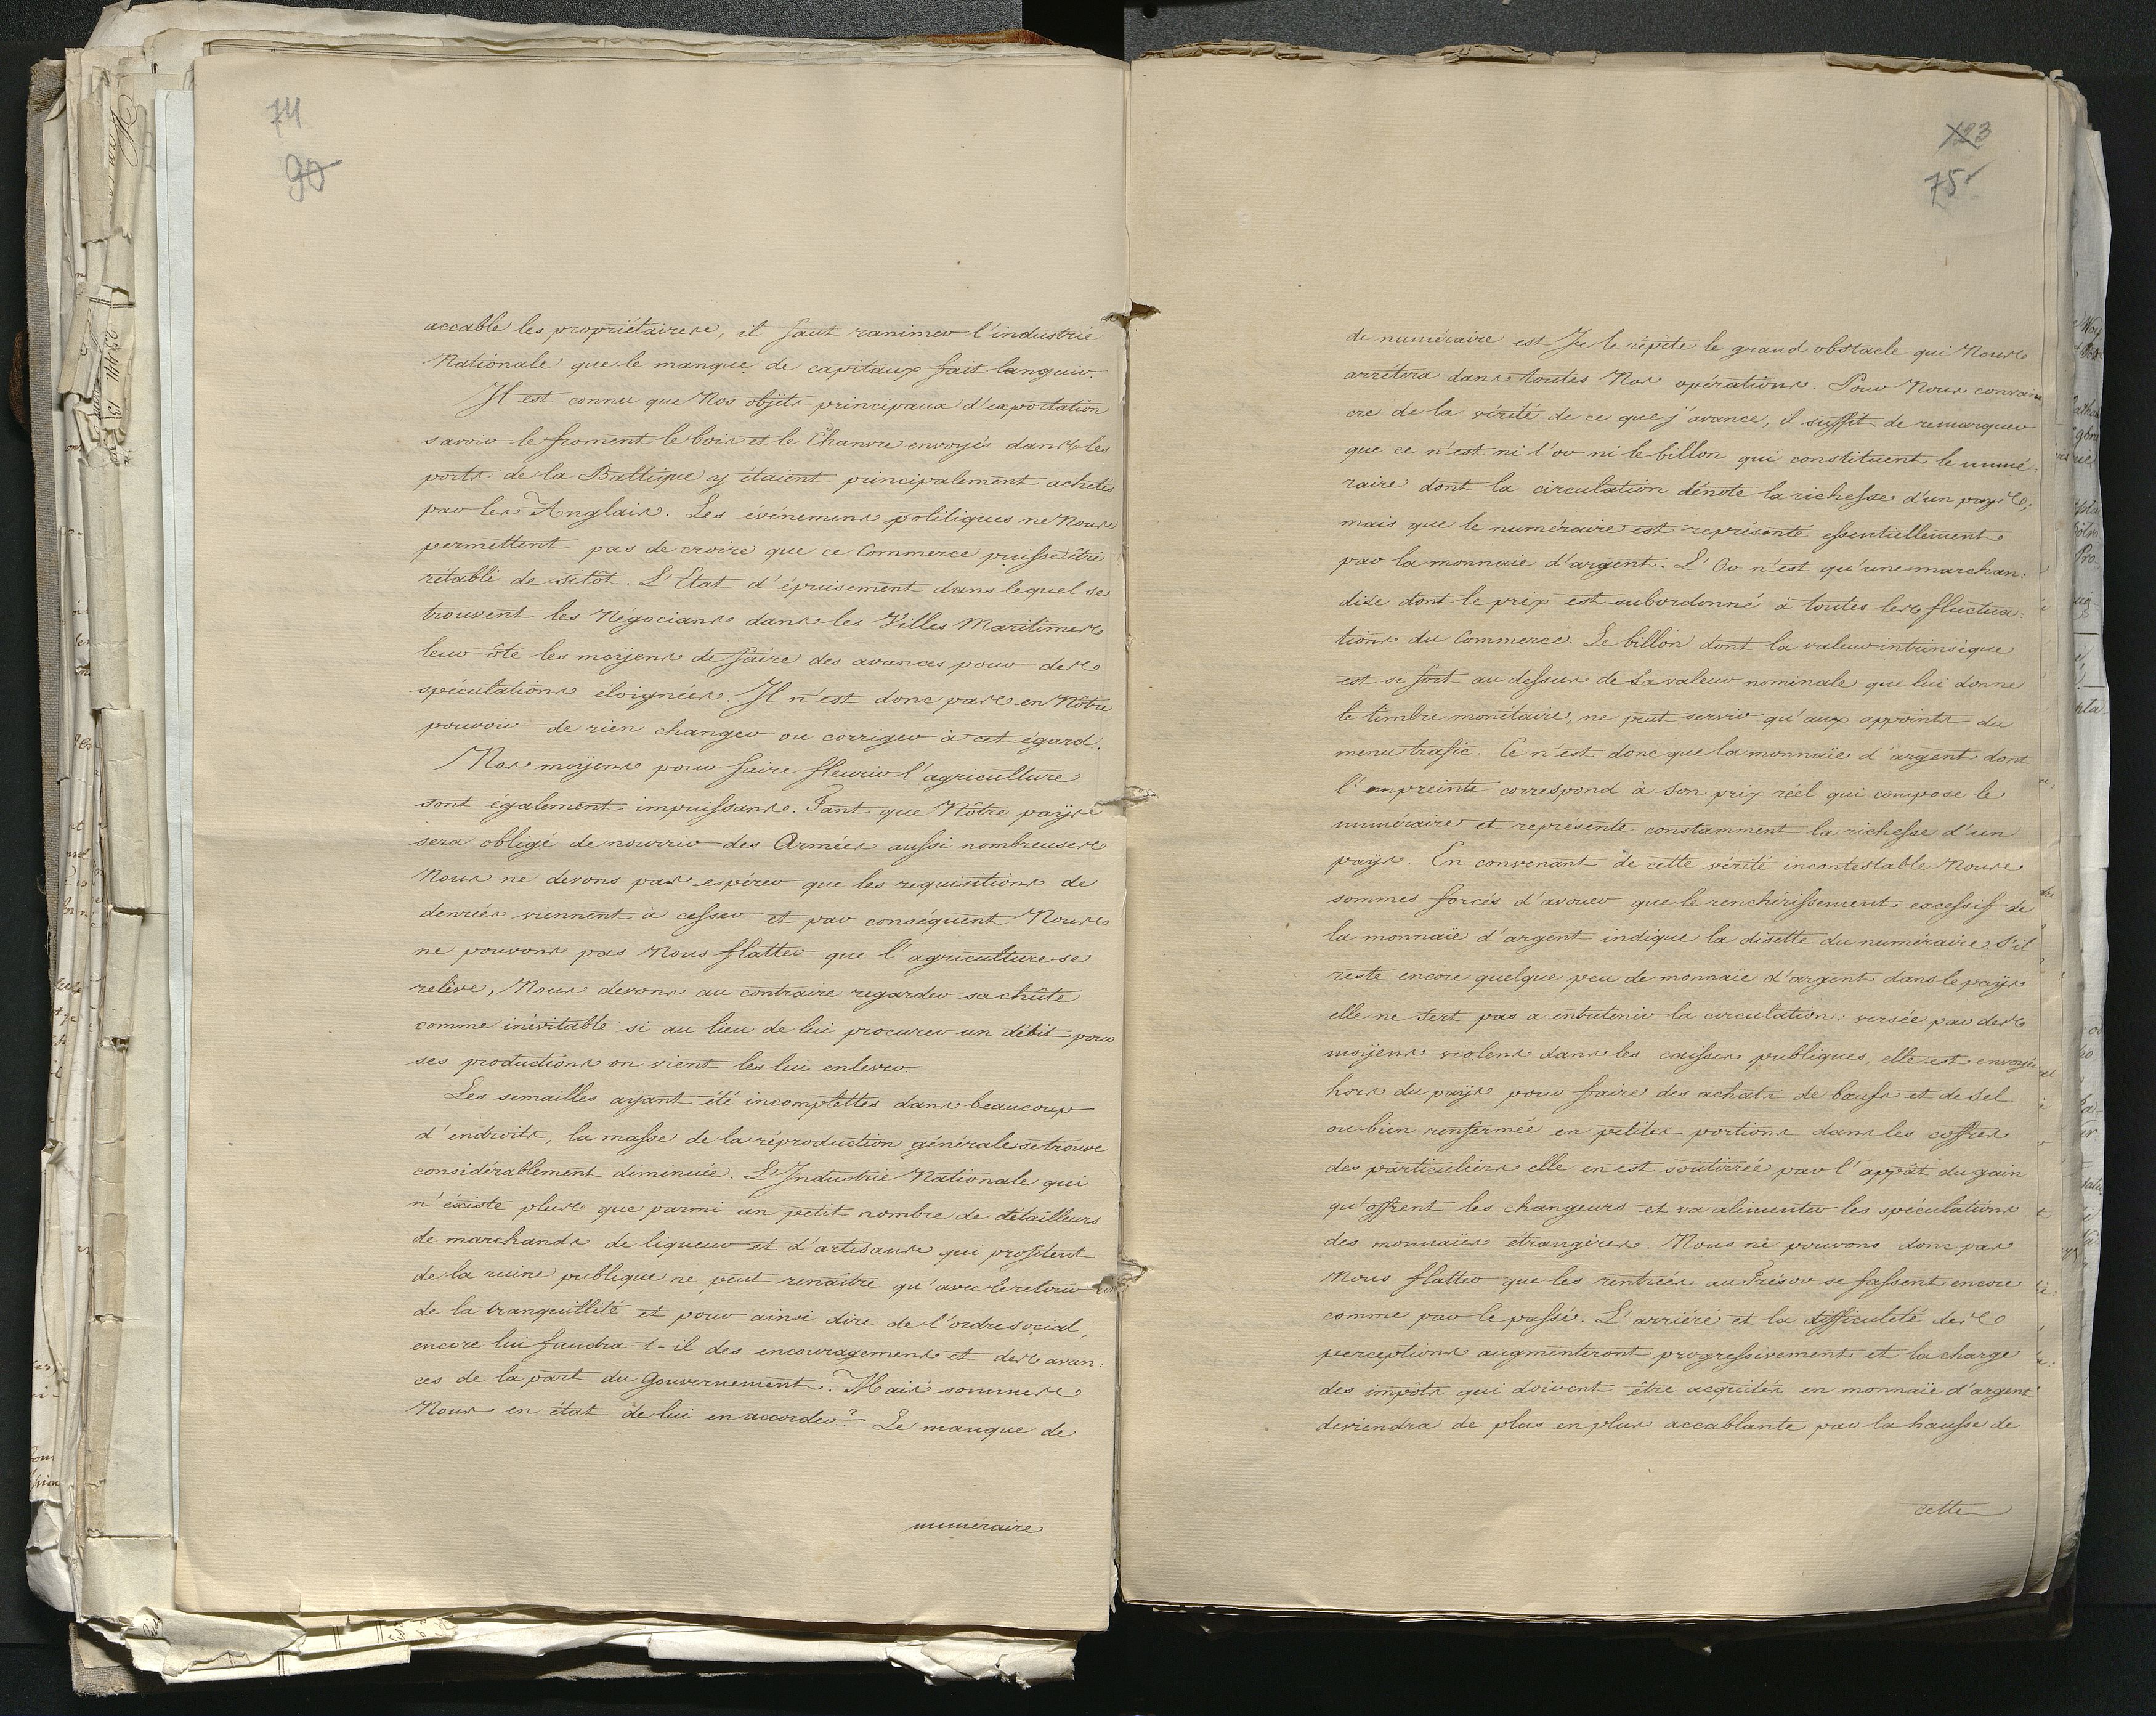 74
90
accable les propriétaires, il faut ranimer l'industrie
Nationale que le manque de capitaux fait languir.
Il est connu que Nos objèts principaux d'exportation
savoir le froment le bois et le Chanvre envoyés dans les
ports de la Baltique y étaient principalement achetés
par les Anglais. Les événemens politiques ne Nous
permettent pas de croire que ce Commerce puisse être
rétabli de sitôt. L'Etat d'épuisement dans lequel se
trouvent les Négocians dans les Villes Maritimes
leur ôte les moÿens de faire des avances pour des
spéculations éloignées. Il n'est donc pas en Nôtre
pouvoir de rien changer ou corriger à cet égard.
Nos moÿens pour faire fleurir l'agriculture
sont également impuissans. Tant que Nôtre paÿs
sera obligé de nourrir des Armées aussi nombreuses
Nous ne devons pas espérer que les requisitions de
denrées viennent à cesser et par conséquent Nous
ne pouvons pas Nous flatter que l'agriculture se
relève, Nous devons au contraire regarder sa chûte
comme inévitable si au lieu de lui procurer un débit pour
ses productions on vient les lui enlever.
Les semailles aÿant été incomplettes dans beaucoup
d'endroits, la masse de la réproduction générale se trouve
considérablement diminuée. L'Industrie Nationale qui
n'éxiste plus que parmi un petit nombre de détailleurs
de marchands de liqueur et d'artisans qui profitent
de la ruine publique ne peut renaître qu'avec le retour
de la tranquillité et pour ainsi dire de l'ordre social,
encore lui faudra-t-il des encouragemens et des avan:
ces de la part du Gouvernement. Mais sommes
Nous en état de lui en accorder? Le manque de
numéraire
123
75
de numéraire est Je le répète le grand obstacle qui Nous
arrêtera dans toutes Nos opérations. Pour Nous convain
cre de la vérité de ce que j'avance, il suffit de remarquer
que ce n'est ni l'or ni le billon qui constituent le numé:
raire dont la circulation dénote la richesse d'un pays;
mais que le numéraire est représenté essentiellement
par la monnaie d'argent. L'Or n'est qu'une marchan:
dise dont le prix est subordonné à toutes les fluctua:
tions du Commerce. Le billon dont la valeur intrinsèque
est si fort au dessus de La valeur nominale que lui donne
le timbre monétaire, ne peut servir qu'aux appoints du
menu trafic. Ce n'est donc que la monnaïe d'argent dont
l'empreinte correspond à son prix réel qui compose le
numéraire et représente constamment la richesse d'un
paÿs. En convenant de cette vérité incontestable Nous
sommes forcés d'avouer que le renchérissement excessif de
la monnaïe d'argent indique la disette du numéraire. S'il
reste encore quelque peu de monnaïe d'argent dans le paÿs
elle ne sert pas a entretenir la circulation: versée par des
moÿens violens dans les caisses publiques, elle est envoyée
hors du paÿs pour faire des achats de bœufs et de Sel
ou bien renfermée en petites portions dans les coffres
des particuliers elle en est soutirrée par l'appât du gain
qu'offrent les changeurs et va alimenter les spéculations
des monnaïes étrangères. Nous ne pouvons donc pas
Nous flatter que les rentrées au Trésor se fassent encore
comme par le passé. L'arriéré et la difficulté des
perceptions augmenteront progressivement et la charge
des impôts qui doivent être acquités en monnaïe d'argent
deviendra de plus en plus accablante par la hausse de
cette